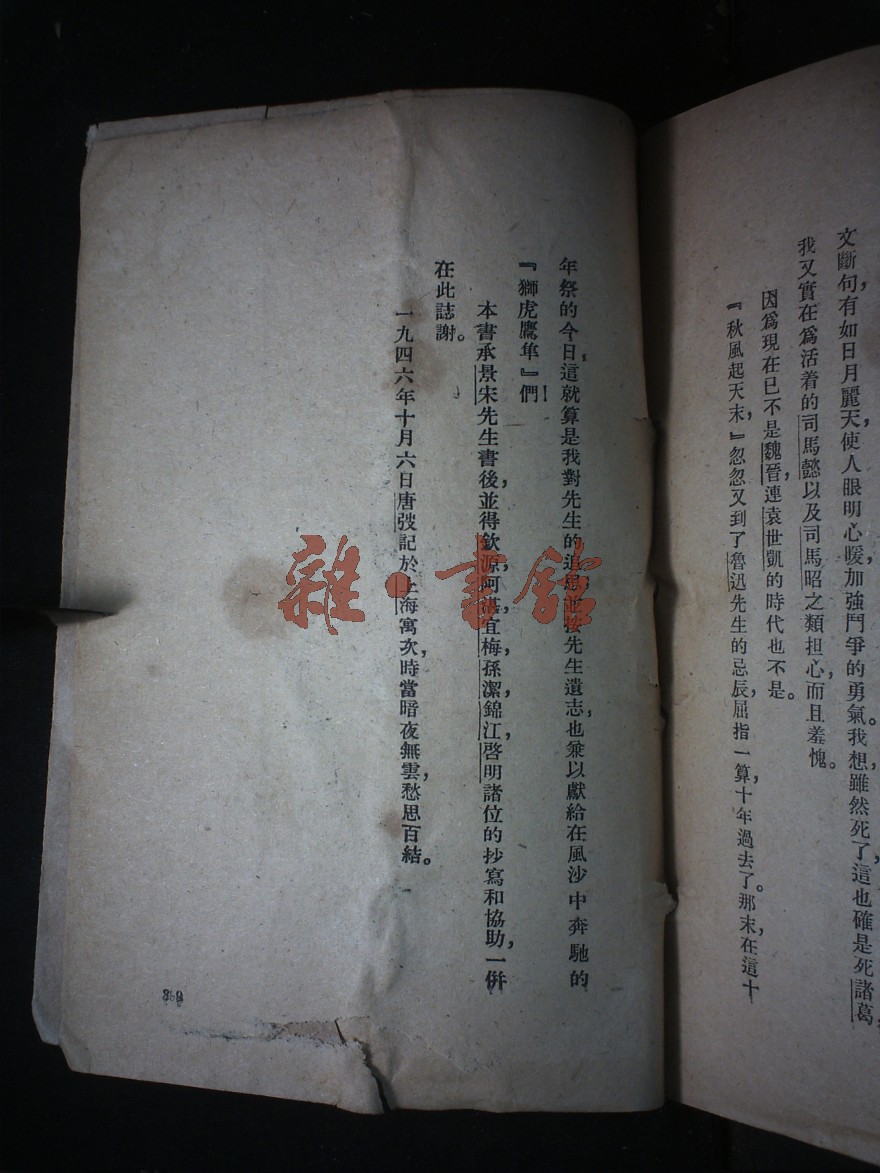 文斷句，有如日月麗天，使人眼明心暖，加強鬥爭的勇氣。我想，雖然死了，這也確是死諸葛，
我又實在爲活着的司馬懿以及司馬昭之類担心，而且羞愧。
因爲現在已不是魏晉，連袁世凱的時代也不是。
『秋風起天末，』忽忽又到了魯迅先生的忌辰，屈指一算，十年過去了。那末，在這十
年祭的今日，這就算是我對先生的追思，並按先生遺志，也兼以獻給在風沙中奔馳的
『獅虎鷹隼』們！
本書承景宋先生書後，並得欽源，阿湛，宜梅，孫潔，錦江，啓明諸位的抄寫和協助，一併
在此誌謝。
一九四六年十月六日唐弢記於上海寓次，時當暗夜無雲，愁思百結。
雜·書館